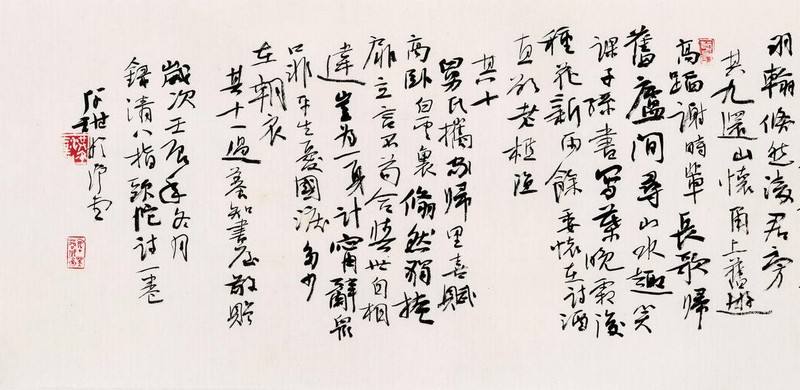 羽翰倏然凌君旁
其九還山懷甬上舊遊
高蹈謝時輩長歌歸
舊廬間尋山水趣笑
課子孫書寫葉晚霜後
種花新雨餘委懷在詩酒
直欲老樵漁
其十
舅氏攜家歸里喜賦
高臥白雲裏翛然獨掩
扉立言不苟合與世自相
違豈為一身計寧辭眾
口非平生憂國淚多少
在朝衣
其十一過養知書屋敬賦
歲次壬辰年冬月
錄清八指頭陀詩一卷